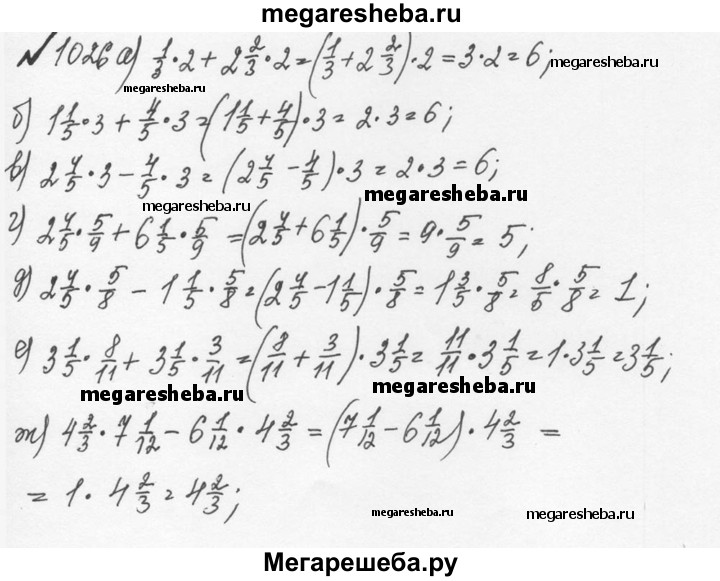 megaresheba.ru
№1026 а) 1/3·2+2 2/3·2=(1/3+2 2/3)·2=3·2=6;
megaresheba.ru
megaresheba.ru
б) 1 1/5·3+4/5·3=(1 1/5+4/5)·3=2·3=6;
в) 2 4/5·3-4/5·3=(2 4/5-4/5)·3=2·3=6;
megaresheba.ru
megaresheba.ru
г) 2 4/5·5/9+6 1/5·5/9=(2 4/5+6 1/5)·5/9=9·5/9=5;
д) 2 4/5·5/8-1 1/5·5/8=(2 4/5-1 1/5)·5/8=1 3/5·5/8=8/5·5/8=1;
е) 3 1/5·8/11+3 1/5·3/11=(8/11+3/11)·3 1/5=11/11·3 1/5=1·3 1/5=3 1/5;
megaresheba.ru
megaresheba.ru
ж) 4 2/3·7 1/12-6 1/12·4 2/3=(7 1/12-6 1/12)·4 2/3=
=1·4 2/3=4 2/3;
megaresheba.ru
megaresheba.ru
Мегарешеба.ру